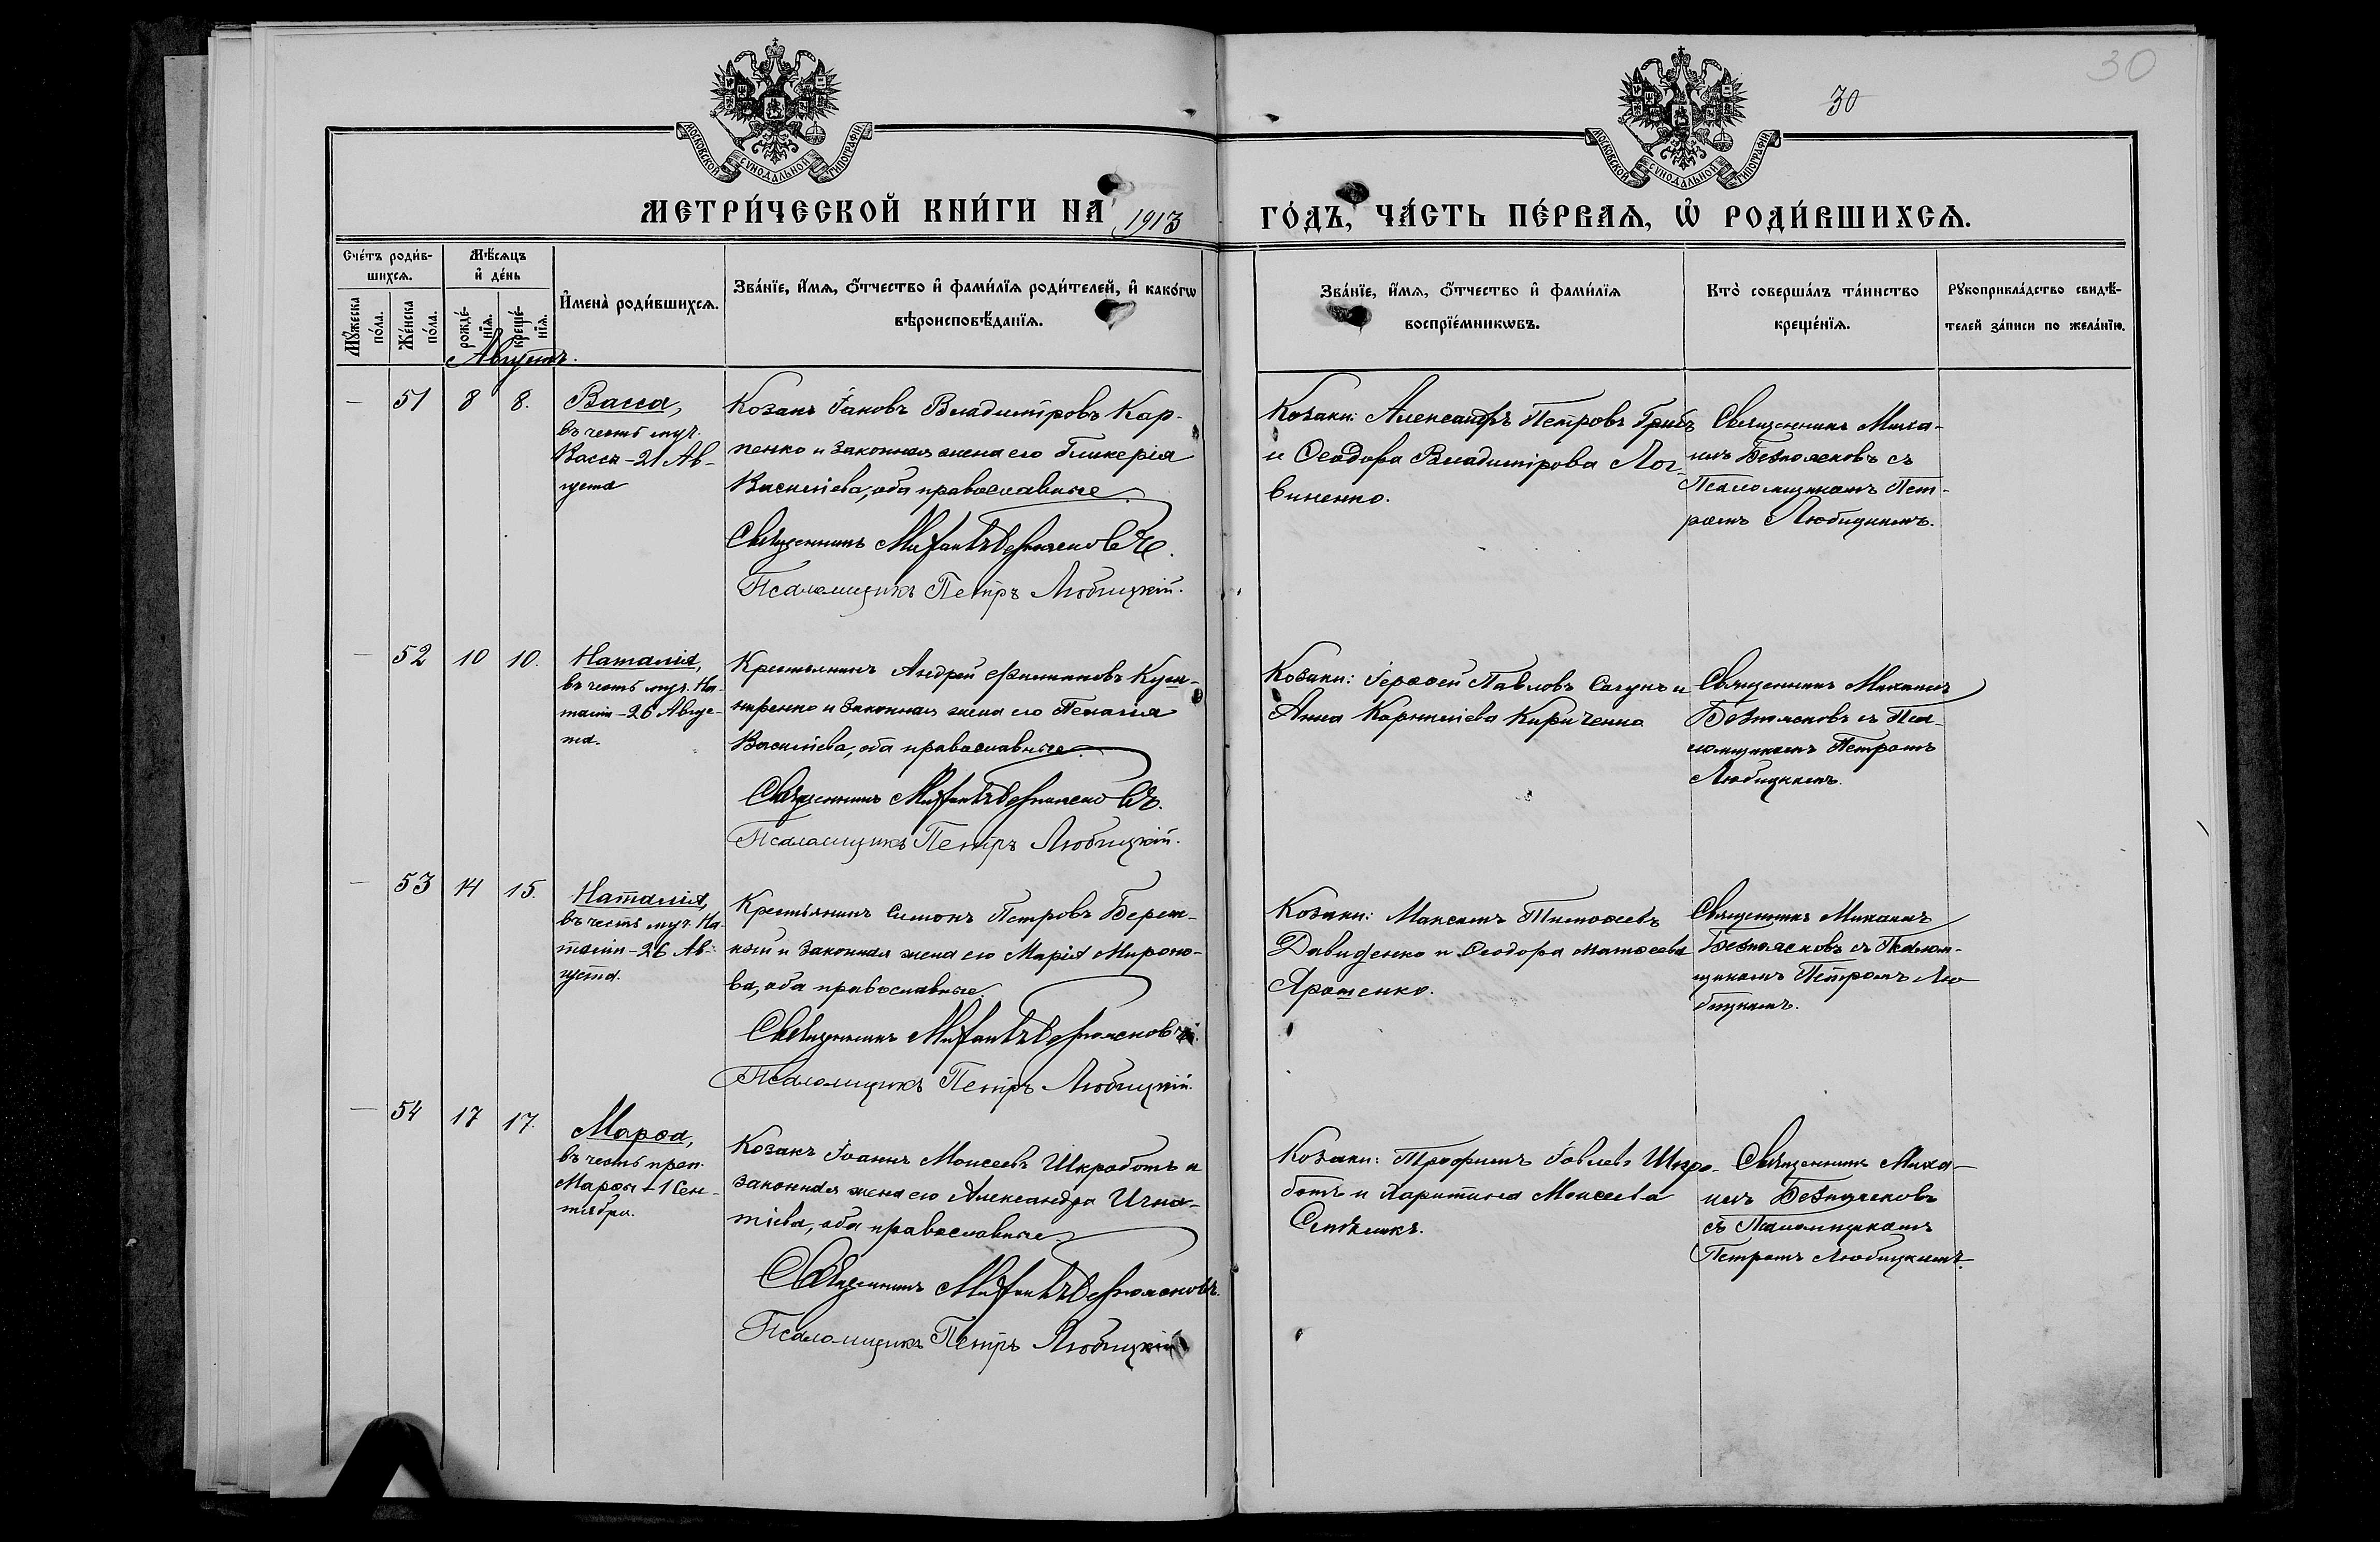 МОСКОВСКОЙ СѴНОДАЛЬНОЙ ТИПОГРАФІИ
МОСКОВСКОЙ СѴНОДАЛЬНОЙ ТИПОГРАФІИ
30
30
МЕТРИ́ЧЕСКОЙ КНИ́ГИ НА 1913
ГО́ДЪ, ЧА́СТЬ ПЕ́РВАѦ, Ѡ҆ РОДИ́ВШИХСѦ.
Сче́тъ роди́в-
шихсѧ.
Мꙋ́жеска
по́ла.
Же́нска
по́ла.
Мѣ́сѧцъ
и҆ де́нь
рожде́-
нїѧ.
креще́-
нїѧ.
И҆мена̀ роди́вшихсѧ.
Зва́нїе, и҆́мѧ, ѻ҆́тчество и҆ фами́лїѧ роди́телей, и҆ како́гѡ
вѣроисповѣ́данїѧ.
Зва́нїе, и҆́мѧ, ѻ҆́тчество и҆ фами́лїѧ
воспрїе́мникѡвъ.
Кто̀ соверша́лъ та́инство
креще́нїѧ.
Рꙋкоприкла́дство свидѣ́-
телей за́писи по жела́нїю.
Августъ.
— 51 8 8.
Васса,
въ честь муч.
Вассы - 21 Ав-
густа
Козакъ Іаковъ Владиміровъ Кар-
пенко и законная жена его Гликерія
Василіева, оба православные.
Священникъ Михаилъ Безпоясковъ.
Псаломщикъ Петръ Любицкій.
Козаки: Александръ Петровъ Грибъ
и Ѳеодора Владимірова Лог-
виненко.
Священникъ Миха-
илъ Безпоясковъ съ
Псаломщикомъ Пет-
ромъ Любицкимъ.
— 52 10 10.
Наталія,
въ честь муч. На-
таліи - 26 Авгус-
та.
Крестьянинъ Андрей Филипповъ Куш-
ниренко и законная жена его Пелагія
Василіева, оба православные.
Священникъ Михаилъ Безпоясковъ.
Псаломщикъ Петръ Любицкій.
Козаки: Іероѳей Павловъ Сагунъ и
Анна Корниліева Кириченко
Священникъ Михаилъ
Безпоясковъ съ Пса-
ломщикомъ Петромъ
Любицкимъ.
— 53 14 15.
Наталія,
въ честь муч. На-
таліи - 26 Ав-
густа.
Крестьянинъ Симонъ Петровъ Береж-
ной и законная жена его Марія Мироно-
ва, оба православные.
Священникъ Михаилъ Безпоясковъ.
Псаломщикъ Петръ Любицкій.
Козаки: Максимъ Тимоѳеевъ
Давиденко и Ѳеодора Матѳеева
Ярошенко.
Священникъ Михаилъ
Безпоясковъ съ Псалом-
щикомъ Петромъ Лю-
бицкимъ.
— 54 17 17.
Марѳа,
въ честь преп.
Марѳы - 1 Сен-
тября.
Козакъ Іоаннъ Моисеевъ Шкроботъ и
законная жена его Александра Игна-
тіева, оба православные.
Священникъ Михаилъ Безпоясковъ.
Псаломщикъ Петръ Любицкій
Козаки: Трофимъ Іовлевъ Шкро-
ботъ и Харитина Моисеева
Священникъ Миха-
илъ Безпоясковъ
съ Псаломщикомъ
Петромъ Любицкимъ.